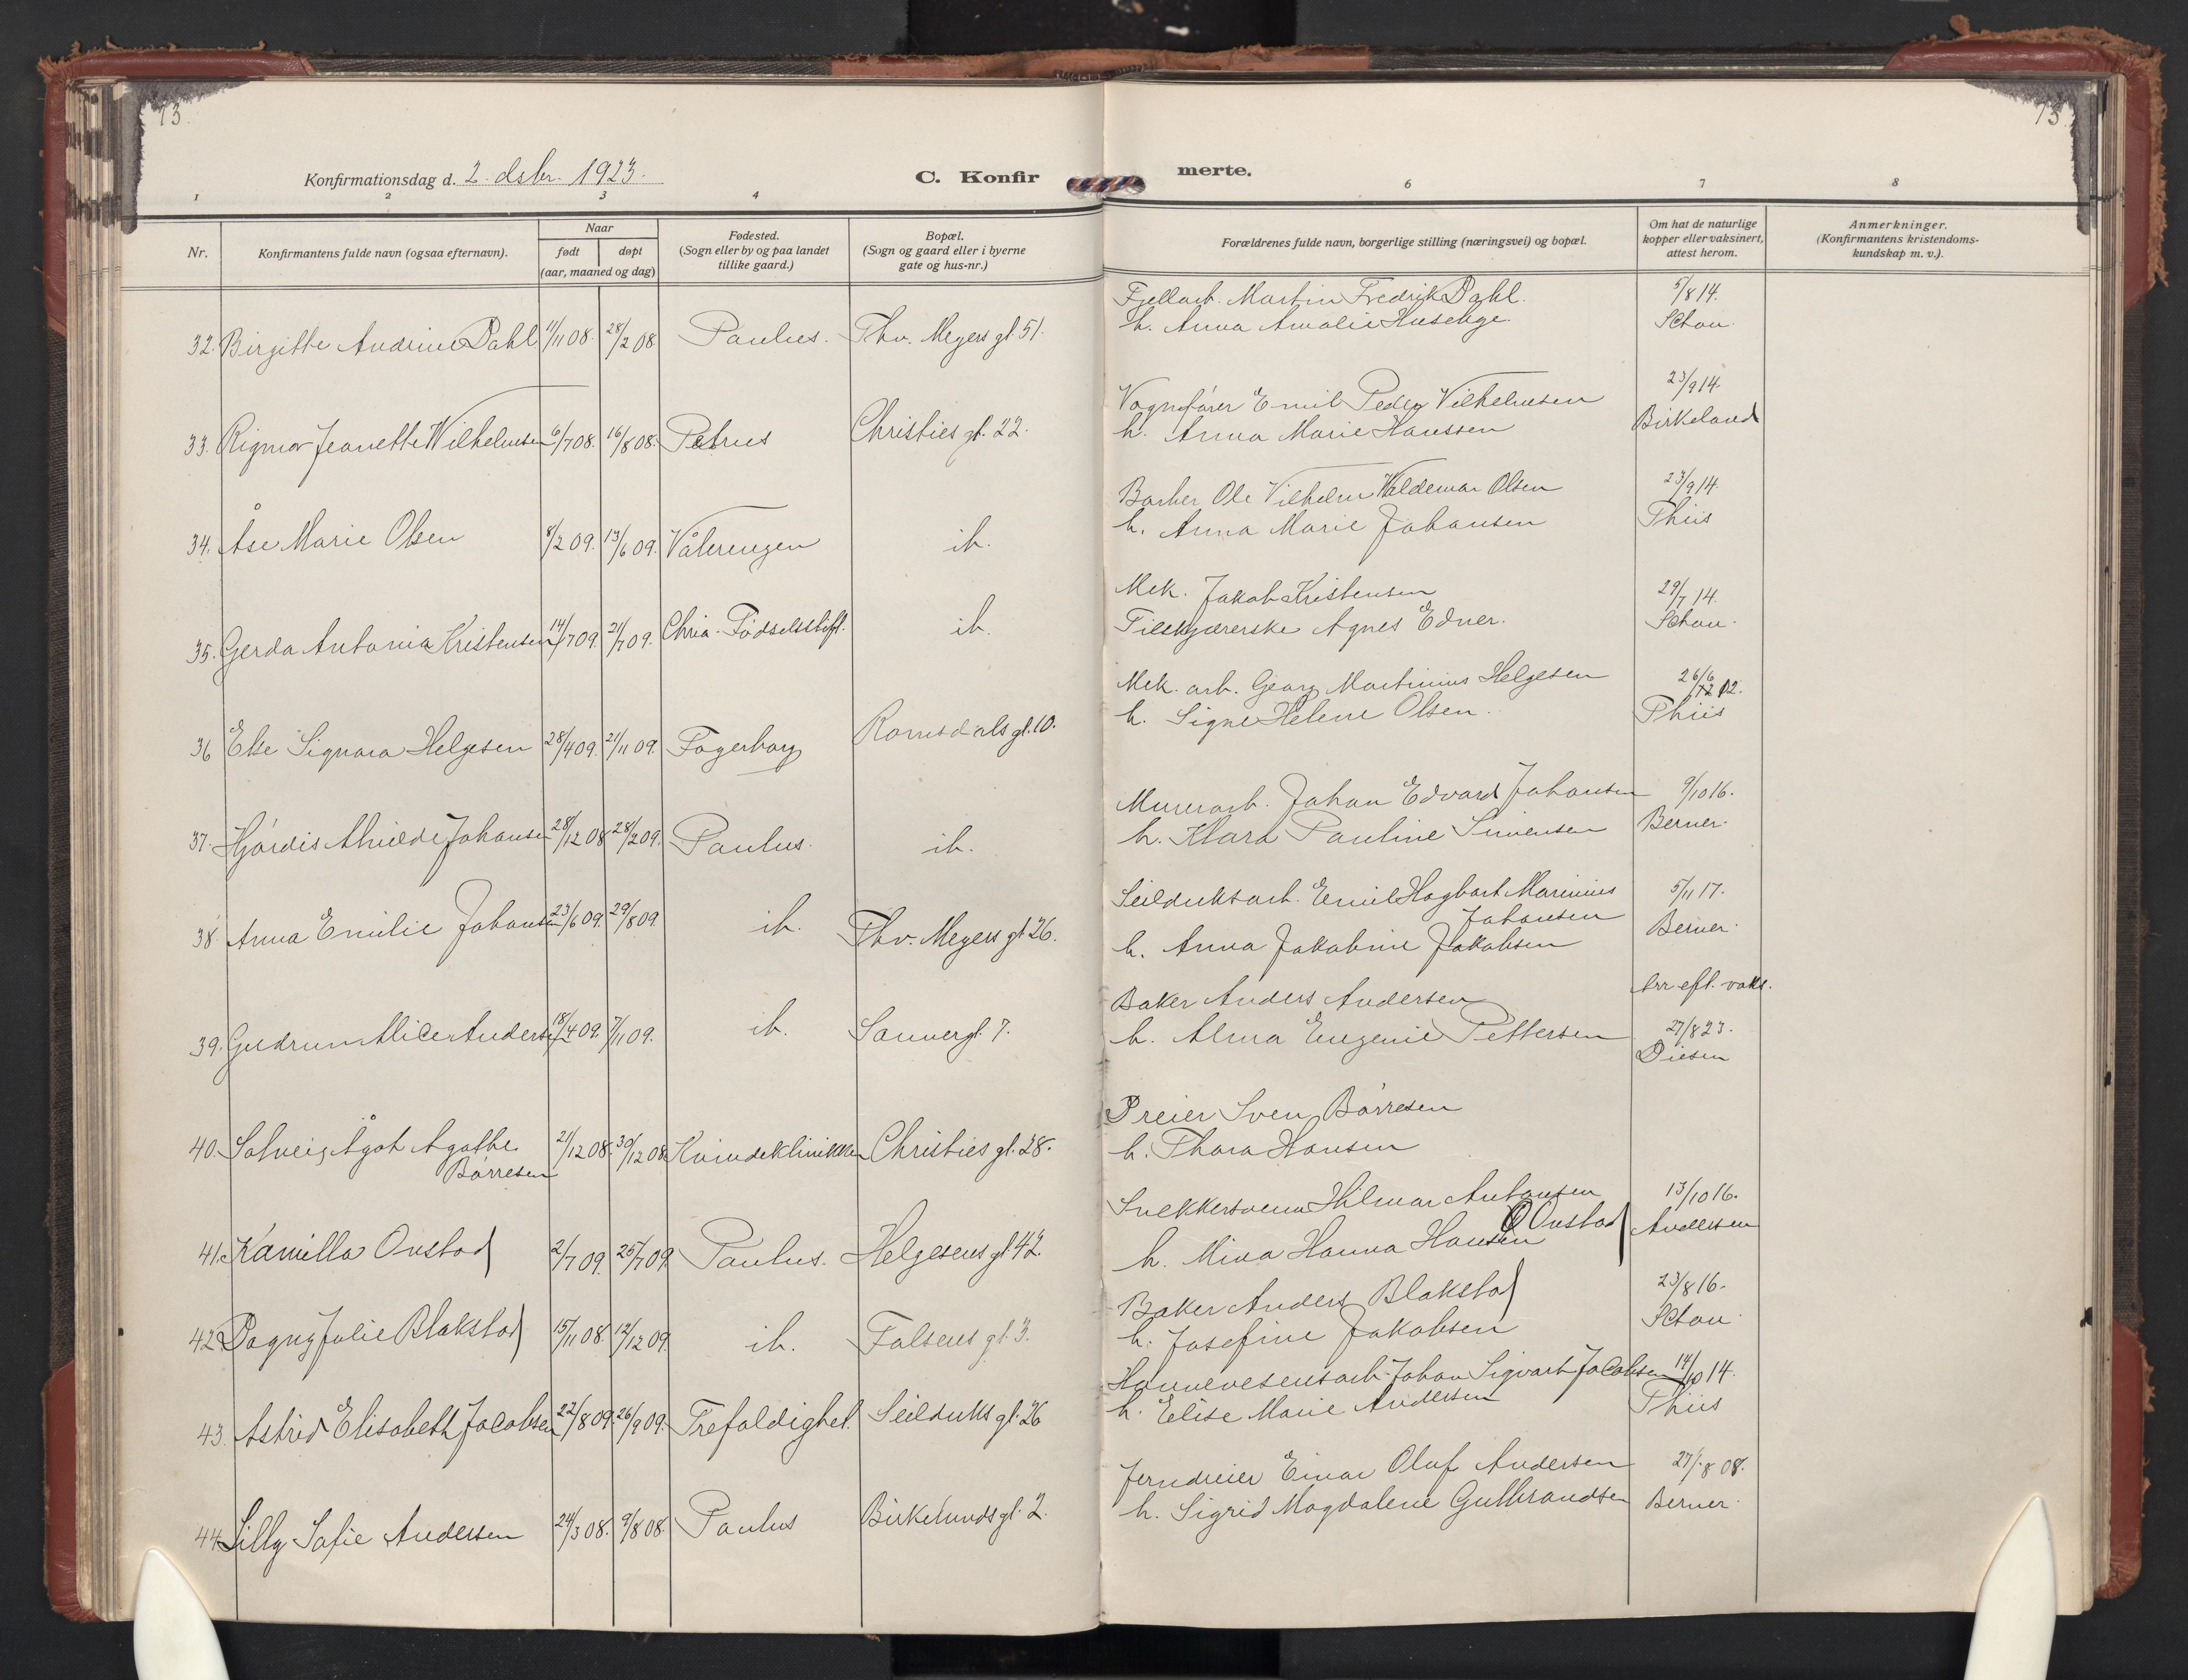 73.
73
Konfirmationsdag d. 2. dsbr. 1923.
C. Konfir
merte.
1 2 3 4 6 7 8
Nr.
Konfirmantens fulde navn (ogsaa efternavn).
Naar
født døpt
(aar, maaned og dag)
Fødested.
(Sogn eller by og paa landet
tillike gaard.)
Bopæl.
(Sogn og gaard eller i byerne
gate og hus-nr.)
Forældrenes fulde navn, borgerlige stilling (næringsvei) og bopæl.
Om hat de naturlige
kopper eller vaksinert,
attest herom.
Anmerkninger.
(Konfirmantens kristendoms-
kundskap m. v.).
32. Birgitte Andrine Dahl 11/11 08. 28/2 08 Paulus. Thv. Meyers gt. 51.
Fjellarb. Martin Fredrik Dahl. 5/8 14.
h. Anna Amalie Schou.
33. Rigmor Jeanette Wilhelmsen 6/7 08. 16/8 08. Petrus Christies gt. 22.
Vognfører Emil Peder Vilhelmsen 23/9 14.
h. Anna Marie Hanssen Birkeland
34. Åse Marie Olsen 8/2 09. 13/6 09. Vålerengen ib.
Barber Ole Vilhelm Valdemar Olsen 23/9 14.
h. Anna Marie Johansen Thiis
35. Gerda Antonia Kristensen 14/7 09. 21/7 09. Chria. Fødselsstift. ib.
Mek. Jakob Kristensen 29/7 14.
Tilskjærerske Agnes Edner. Schou.
36 Else Signora Helgesen 28/4 09. 21/11 09. Fagerborg Romsdals gt. 10.
Mek. arb. Georg Martinius Helgesen 26/6 12.
h. Signe Helene Olsen. Thiis
37. Hjørdis Alvilde Johansen 28/12 08 28/2 09. Paulus. ib.
Murerarb. Johan Edvard Johansen 9/10 16.
h. Klara Pauline Simensen Berner.
38. Anna Emilie Johansen 23/6 09. 29/8 09. ib. Thv. Meyers gt. 26.
Seilduksarb. Emil Hagbart Marinius 5/11 17.
Johansen
h. Anna Jakobine Jakobsen Berner.
39. Gudrun Alice Andersen 18/4 09. 7/11 09. ib. Sannergt. 7.
Baker Anders Andersen Arr eft. vaks.
h. Alma Eugenie Pettersen 27/8 23.
Diesen
40. Solveig Ågot Agathe 21/12 08. 30/12 08 Kvindeklinikken Christies gt. 28.
Børresen
Dreier Sven Børresen
h. Thora Hansen
41. Kamilla Onstad 2/7 09. 25/7 09. Paulus. Helgesens gt. 42.
Snekkersvenn Hilmar Antonsen 13/10 16.
Onstad
h. Mina Hanna Hansen Andersen
42. Dagny Julie Blakstad 15/11 08. 12/12 09. ib. Falsens gt. 3.
Baker Anders Blakstad 23/8 16.
h. Josefine Jakobsen Schou.
43. Astrid Elisabeth Jacobsen 22/8 09. 26/9 09. Trefoldighet. Seilduks gt. 26
Havnevesensarb. Johan Sigvart Jacobsen 14/10 14.
h. Elise Marie Andersen Thiis
44. Lilly Sofie Andersen 24/3 08. 9/8 08. Paulus Birkelunds gt. 2.
Jerndreier Einar Oluf Andersen 27/8 08.
h. Sigrid Magdalene Gulbrandsen Berner.